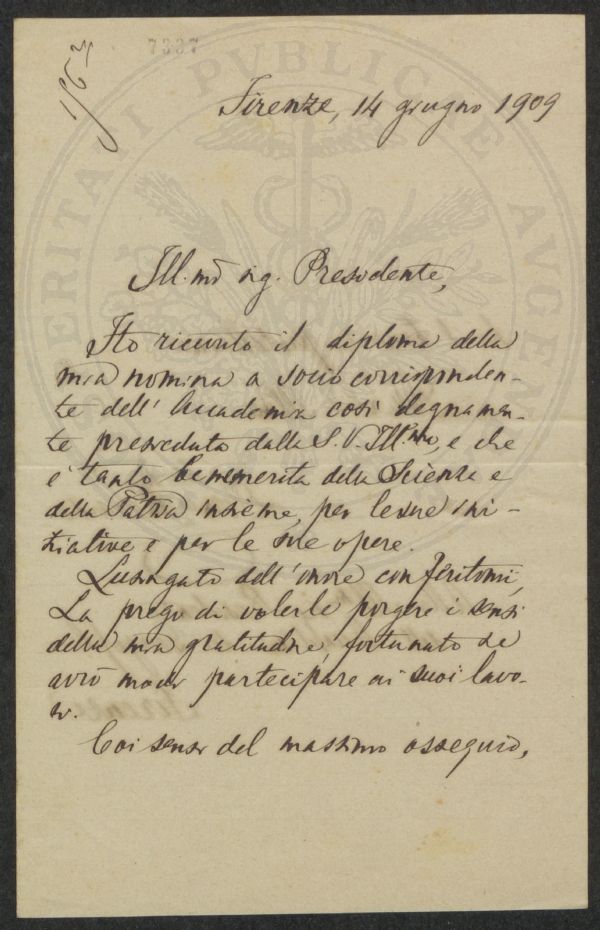 1163
7337
PROSPERITATI PVBLICAE AVGENDAE
Firenze, 14 giugno 1909
Ill.mo sig. Presidente,
Ho ricevuto il diploma della
mia nomina a socio corrisponden-
te dell'Accademia così degnamen-
te presieduta dalla S. V. Ill.ma, e che
è tanto benemerita della Scienza e
della Patria insieme, per le sue ini-
ziative e per le sue opere.
Lusingato dell'onore conferitomi,
La prego di volerle porgere i sensi
della mia gratitudine, fortunato se
avrò modo partecipare ai suoi lavo-
ri.
Coi sensi del massimo ossequio,